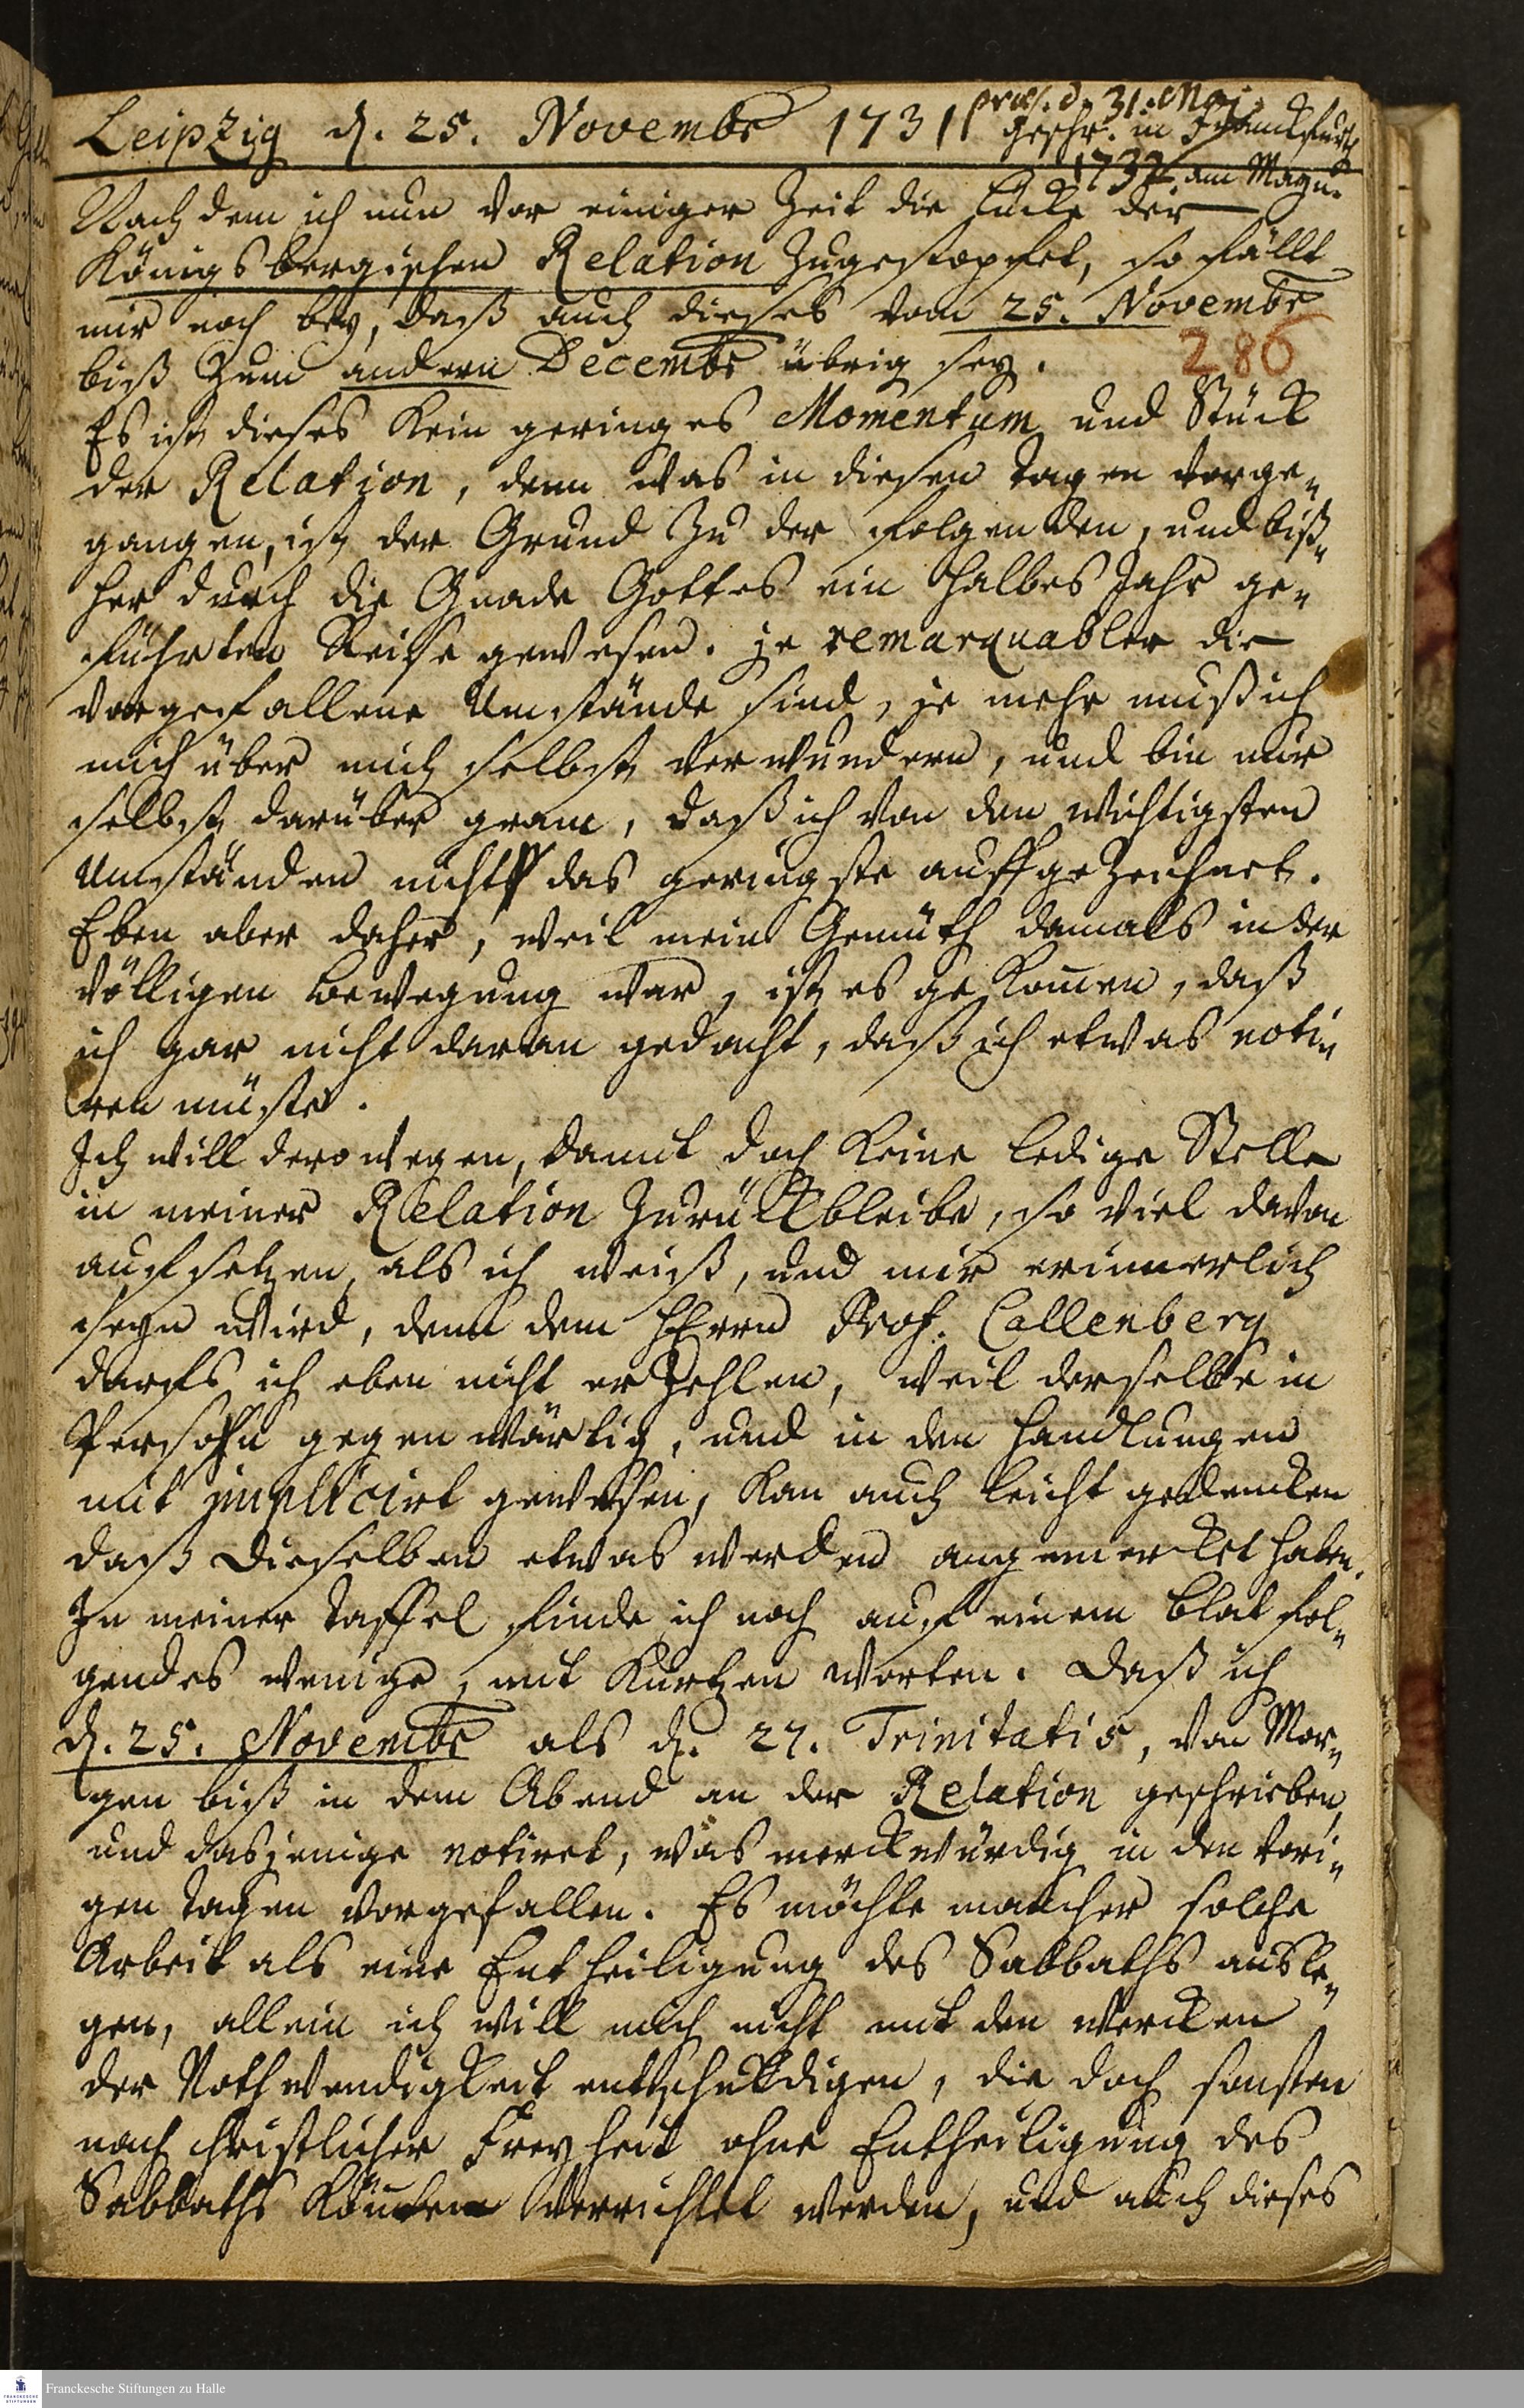 Leipzig d. 25. Novembr 1731
præs. d. 31. Maj.
geschr. in Franckfurth
1732. am Mayn.
Nach dem ich nun vor einiger Zeit die Lücke der
Königsbergischen Relation zugestopfet, so fällt
mir noch bey, daß auch dieses vom 25. Novembr
biß zum andern Decembr übrig sey.
286
Es ist dieses kein geringes Momentum und Stück
der Relation, denn was in diesen Tagen vorge„
gangen, ist der Grund zu der folgenden, und biß„
her durch die Gnade Gottes ein halbes Jahr ge„
führten Reise gewesen. je remarquabler die
vorgefallene Umstände sind, je mehr muß ich
mich über mich selbst verwundern, und bin mir
selbst darüber gram, daß ich von den wichtigsten
Umständen nicht das geringste auffgezeichnet.
Eben aber daher, weil mein Gemüth damals in der
völligen Bewegung war, ist es gekom̅en, daß
ich gar nicht daran gedacht, daß ich etwas noti„
ren müste.
Ich will derowegen, damit doch keine ledige Stelle
in meiner Relation zurückbleibe, so viel davon
auffsetzen, als ich weiß, und mir erinnerlich
seyn wird, denn dem HErrn Prof. Callenberg
darfs ich eben nicht erzehlen, weil derselbe in
Persohn gegenwärtig, und in den Handlungen
mit implicirt gewesen, kan auch leicht gedencken
daß dieselben etwas werden angemercket haben.
In meiner Taffel finde ich noch auf einem Blat fol„
gendes wenige, mit kurtzen Worten. Daß ich
d. 25. Novembr als d. 27. Trinitatis, von Mor„
gen biß in dem Abend an der Relation geschrieben,
und dasjenige notiret, was merckwürdig in den vori„
gen Tagen vorgefallen. Es möchte mancher solche
Arbeit als eine Entheiligung des Sabbaths ausle„
gen, allein ich will mich nicht mit den Wercken
der Nothwendigkeit entschuldigen, die doch sonsten
nach christlicher Freyheit ohne Entheiligung des
Sabbaths können verrichtet werden, und auch dieses
Franckesche Stiftungen zu Halle